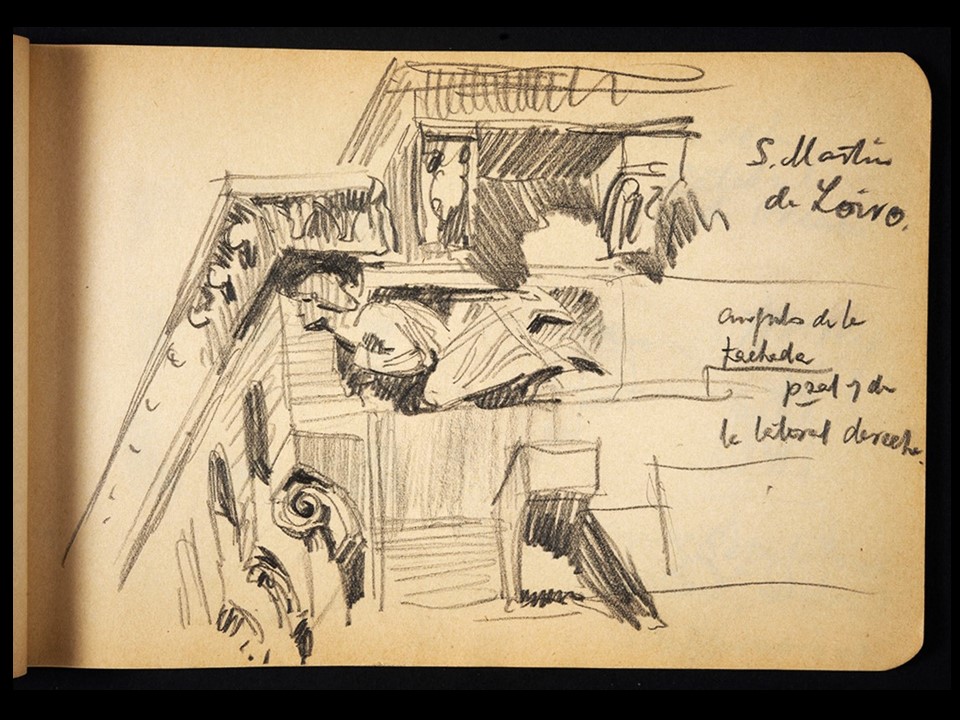 S. Martin
de Loiro.
angulo de la
fachada
pral y de
la lateral derecha.